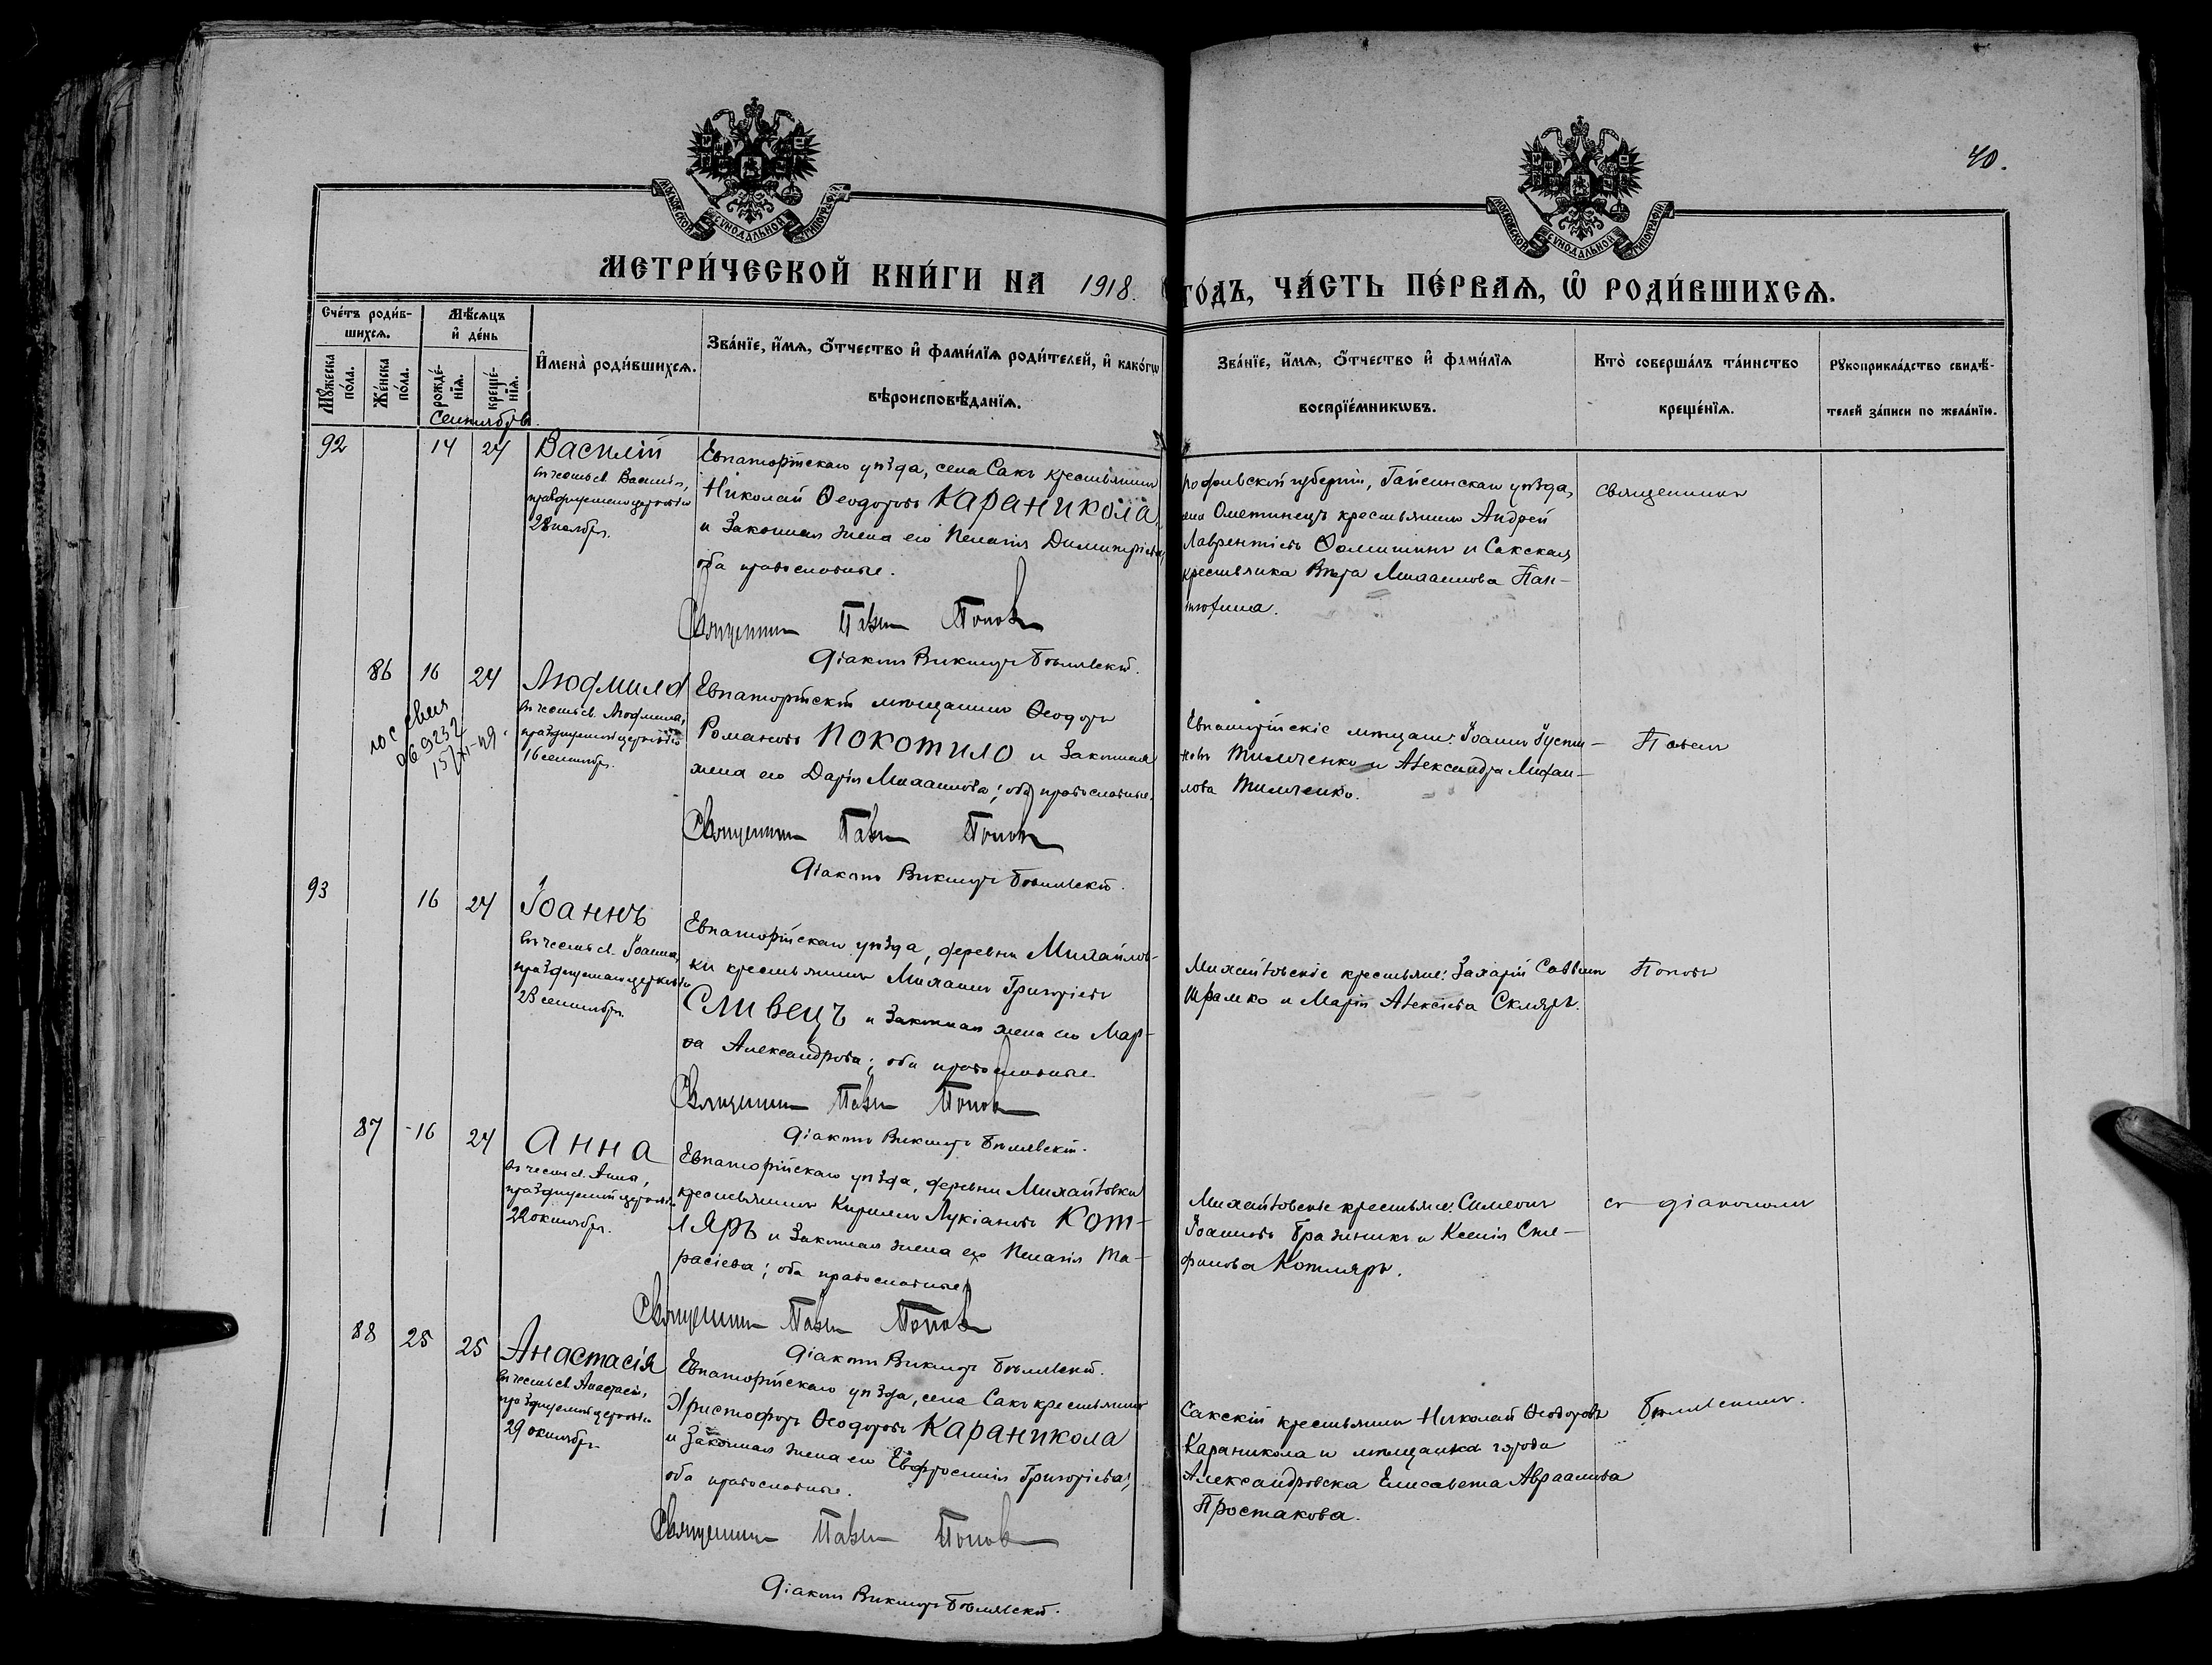 40.
МОСКОВСКОЙ СѴНОДАЛЬНОЙ ТИПОГРАФІИ
МОСКОВСКОЙ СѴНОДАЛЬНОЙ ТИПОГРАФІИ
МЕТРИ́ЧЕСКОЙ КНИ́ГИ НА 1918. ГО́ДЪ, ЧА́СТЬ ПЕ́РВАѦ, Ѡ҆ РОДИ́ВШИХСѦ.
Сче́тъ роди́в-
шихсѧ.
Мѣ́сѧцъ
и҆ де́нь
Мꙋ́жеска по́ла.
Же́нска по́ла.
рожде́-
нїѧ.
креще́-
нїѧ.
И҆мена̀ роди́вшихсѧ.
Зва́нїе, и҆́мѧ, ѻ҆́тчество и҆ фами́лїѧ роди́телей, и҆ како́гѡ
вѣроисповѣ́данїѧ.
Зва́нїе, и҆́мѧ, ѻ҆́тчество и҆ фами́лїѧ
воспрїе́мникѡвъ.
Кто̀ соверша́лъ та́инство
креще́нїѧ.
Рꙋкоприкла́дство свидѣ́-
телей за́писи по жела́нїю.
Сентябрь.
92 14 24 Василій
въ честь св. Василія,
празднуемаго церковію
28 ноября.
Евпаторійскаго уѣзда, села Сакъ крестьянинъ
Николай Ѳеодоровъ КАРАНИКОЛА
и законная жена его Пелагія Димитріева,
оба православные.
Священникъ Павелъ Поповъ
Діаконъ Викторъ Бѣлявскій.
губерніи, Гайсинскаго уѣзда,
Ометинецъ крестьянинъ Андрей
Лаврентіевъ и Сакская
крестьянка Вѣра Михаилова Пан-
тюхина.
Священникъ
86 16 24 Людмила
въ честь св. Людмилы,
празднуемой церковію
16 сентября.
15/XI-49.
Евпаторійскій мѣщанинъ Ѳеодоръ
Романовъ ПОКОТИЛО и законная
жена его Дарія Михаилова; оба православные.
Священникъ Павелъ Поповъ
Діаконъ Викторъ Бѣлявскій.
Евпаторійскіе мѣщане: Іоаннъ Іусти-
новъ Тимченко и Александра Михаи-
лова Тимченко.
Павелъ
93 16 24 Іоаннъ
въ честь св. Іоанна,
празднуемаго церковію
23 сентября.
Евпаторійскаго уѣзда, деревни Михайлов-
ки крестьянинъ Михаилъ Григоріевъ
СЛИВЕЦЪ и законная жена его Мар-
ѳа Александрова; оба православные
Священникъ Павелъ Поповъ
Діаконъ Викторъ Бѣлявскій.
Михайловскіе крестьяне: Захарій Саввинъ
Шрамко и Марія Алексіева Скляръ.
Поповъ
87 16 24 Анна
въ честь св. Анны,
празднуемой церковію
22 октября.
Евпаторійскаго уѣзда, деревни Михайловки
крестьянинъ Кириллъ Лукіановъ КОТ-
ЛЯРЪ и законная жена его Пелагія Та-
расіева; оба православные
Священникъ Павелъ Поповъ
Діаконъ Викторъ Бѣлявскій.
Михайловскіе крестьяне: Симеонъ
Іоанновъ Бражникъ и Ксенія Сте-
фанова Котляръ.
съ діакономъ
88 25 25 Анастасія
въ честь св. Анастасіи,
празднуемой церковію
29 октября
Евпаторійскаго уѣзда, села Сакъ крестьянинъ
Христофоръ Ѳеодоровъ КАРАНИКОЛА
и законная жена его Евфросинія Григоріева;
оба православные.
Священникъ Павелъ Поповъ
Діаконъ Викторъ Бѣлявскій.
Сакскій крестьянинъ Николай Ѳеодоровъ
Караникола и мѣщанка города
Александровска Елисавета Авраамова
Простакова.
Бѣлявскимъ.